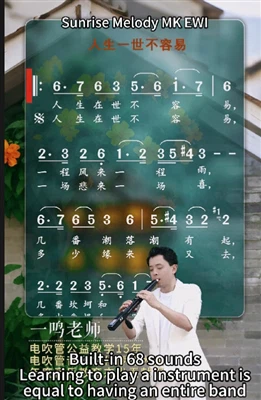 Sunrise Melody MK EWI
人生一世不容易
6· 7 6 3 5· 6 1· 7 | 6
人 生 在 世 不 容 易,
人 生 在 世 不 容 易,
2· 3 2 6 1· 2 3 5 #4 3 - -
一 程 风 来 一 程 雨,
一 场 悲 来 一 场 喜,
6· 7 6 5 3 6 | 5· #4 3 2
几 番 潮 落 潮 有 起,
多 少 缘 来 又 去,
2· 3 2 1
几 番 坎 坷 和
多 少
一鸣老师
电吹管公益教学15年
电吹管
Built-in 68 sounds
Learning to play a instrument is
equal to having an entire band